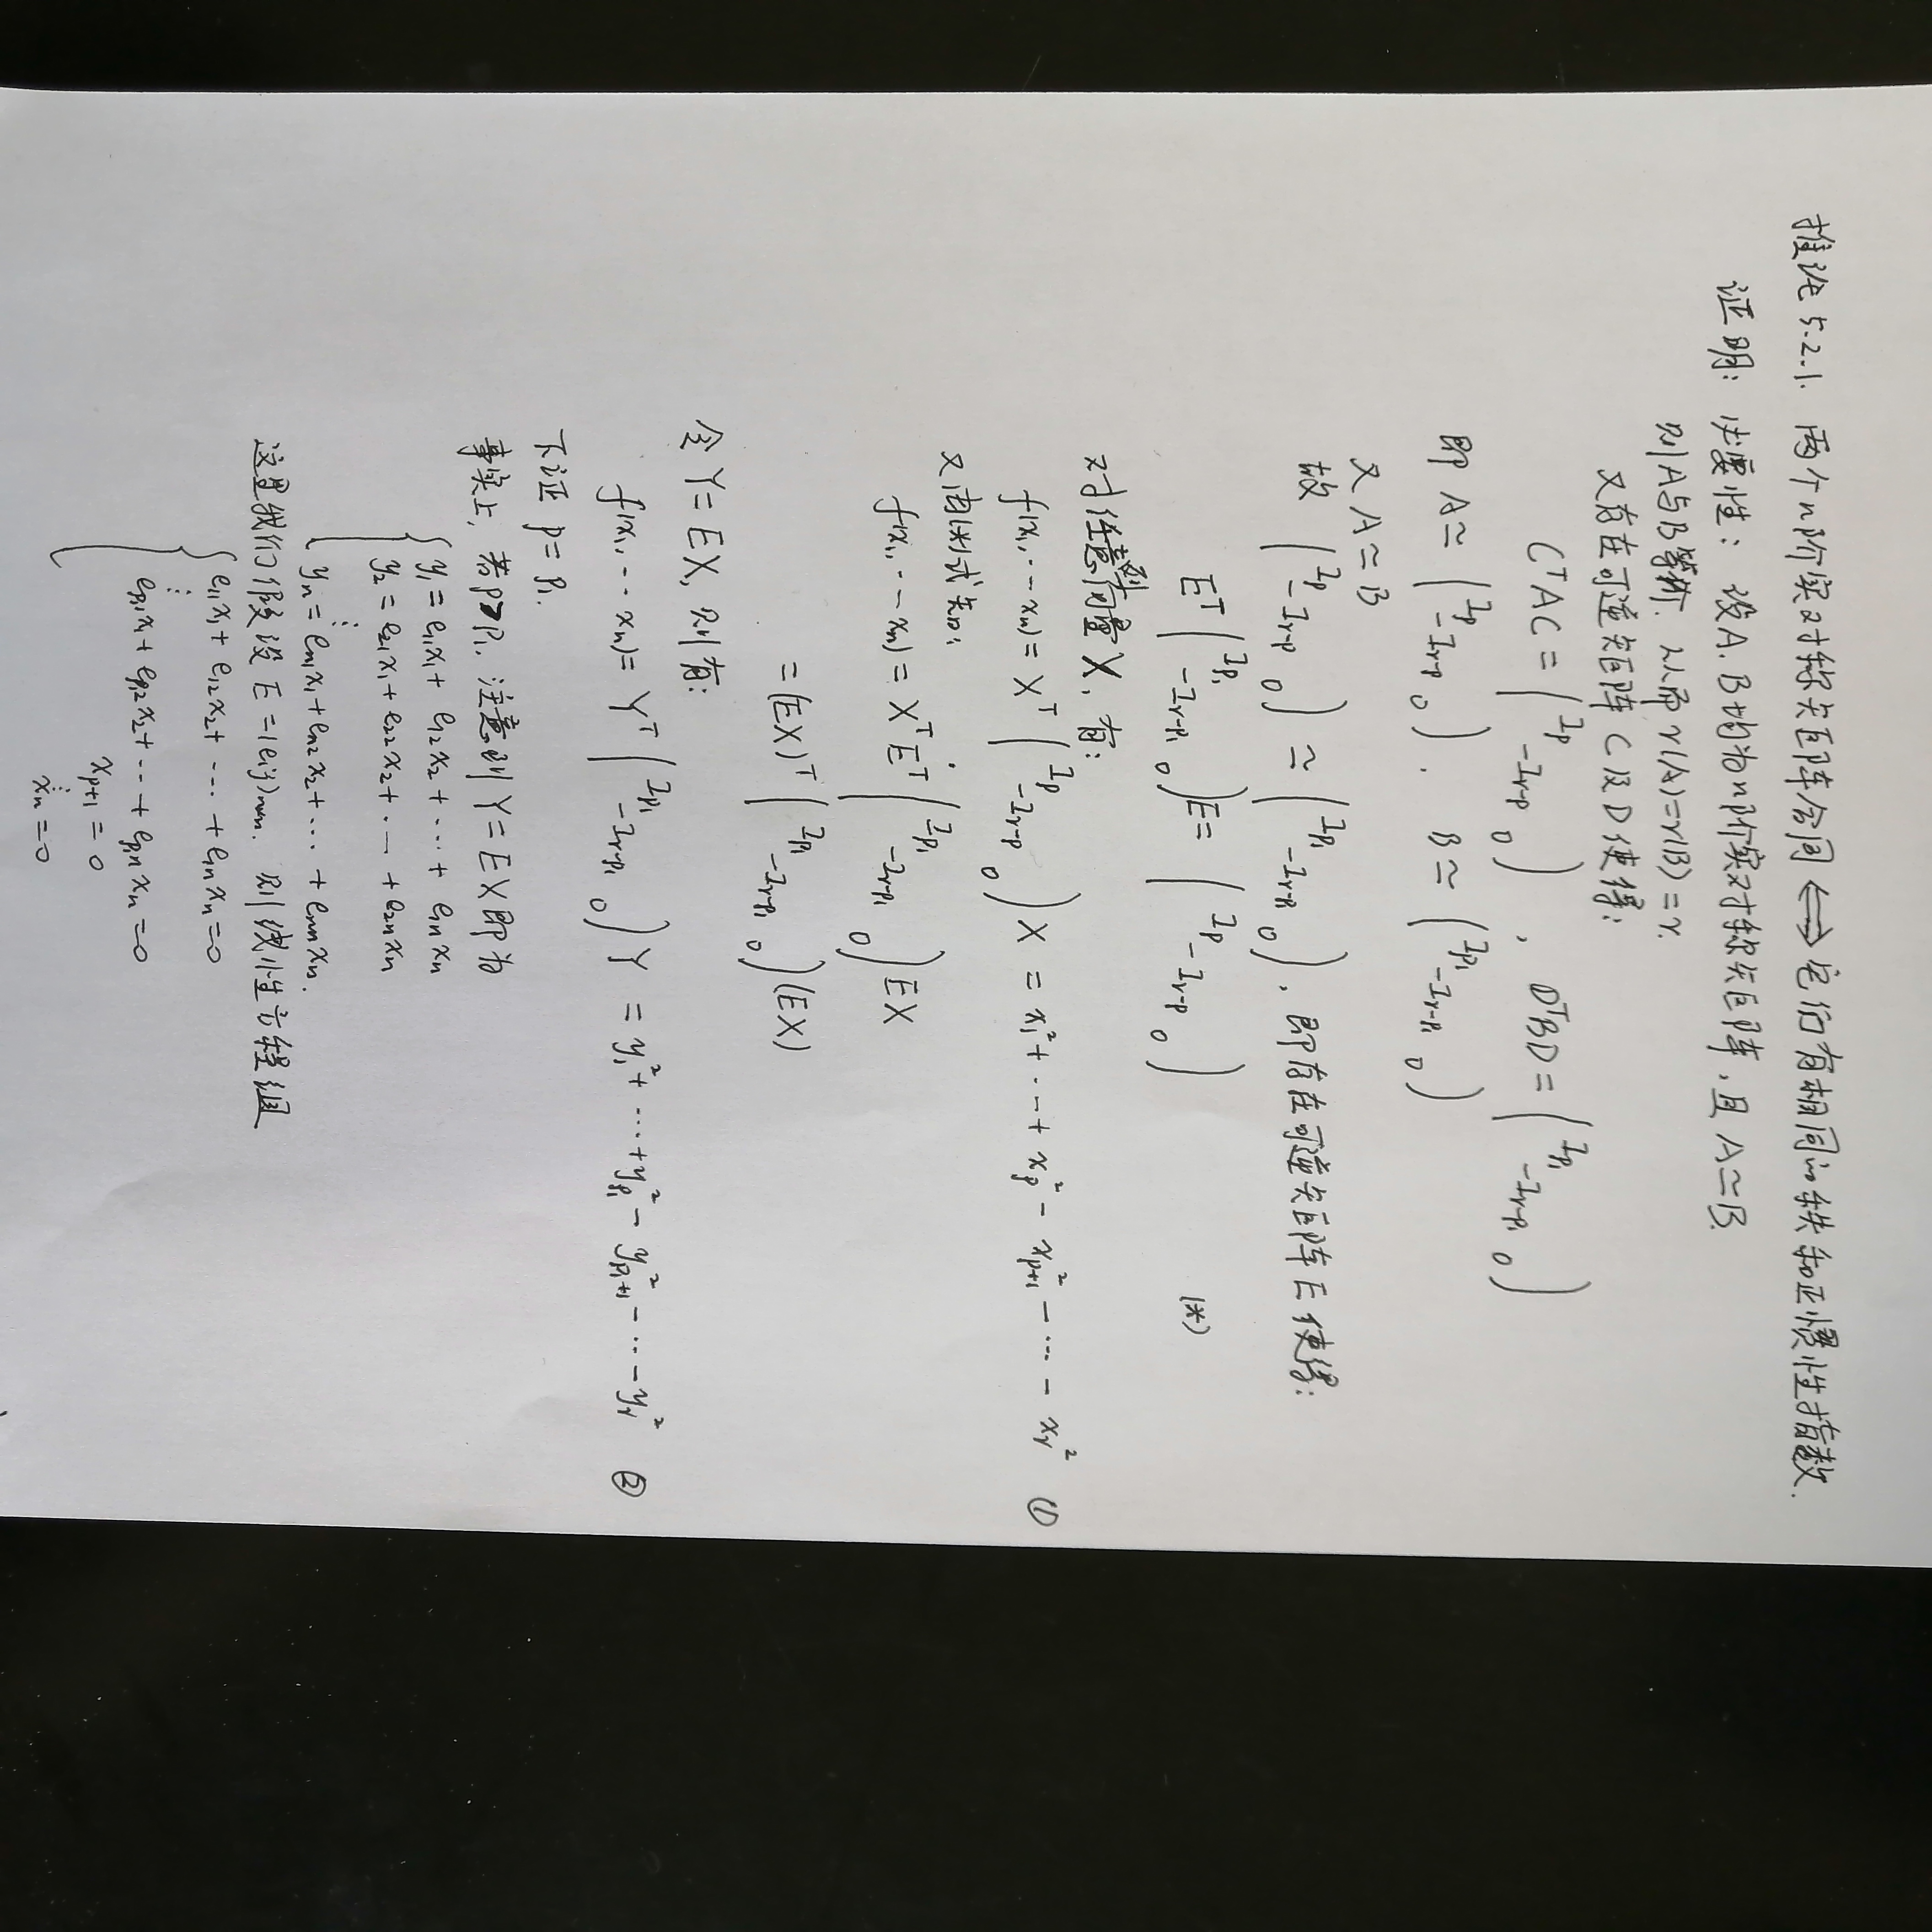 推论5.2.1. 两个n阶实对称矩阵合同 ⟺ 它们有相同的秩和正惯性指数.
证明: 必要性: 设A. B均为n阶实对称矩阵, 且 A≃B.
则A与B等价. 从而 r(A)=r(B)=r.
又存在可逆矩阵 C 及 D 使得:
CᵀAC = (I_p -I_{r-p} 0), DᵀBD = (I_{p₁} -I_{r-p₁} 0)
即 A≃ (I_p -I_{r-p} 0). B≃ (I_{p₁} -I_{r-p₁} 0)
又 A≃B
故 (I_p -I_{r-p} 0) ≃ (I_{p₁} -I_{r-p₁} 0), 即存在可逆矩阵E使得:
Eᵀ (I_{p₁} -I_{r-p₁} 0) E = (I_p -I_{r-p} 0) (*)
对任意列向量 X, 有:
f(x₁, ⋯ xₙ) = Xᵀ (I_p -I_{r-p} 0) X = x₁² + ⋯ + x_p² - x_{p+1}² - ⋯ - x_r² ①
又由(*)式知,
f(x₁, ⋯ xₙ) = XᵀEᵀ (I_{p₁} -I_{r-p₁} 0) EX
= (EX)ᵀ (I_{p₁} -I_{r-p₁} 0) (EX)
令 Y=EX, 则有:
f(x₁, ⋯ xₙ) = Yᵀ (I_{p₁} -I_{r-p₁} 0) Y = y₁² + ⋯ + y_{p₁}² - y_{p₁+1}² - ⋯ - y_r² ②
下证 p=p₁.
事实上, 若p>p₁. 注意到 Y=EX即为
{ y₁ = e₁₁x₁ + e₁₂x₂ + ⋯ + e₁ₙxₙ
y₂ = e₂₁x₁ + e₂₂x₂ + ⋯ + e₂ₙxₙ
⋮
yₙ = eₙ₁x₁ + eₙ₂x₂ + ⋯ + eₙₙxₙ.
这里我们假设 E=(eᵢⱼ)ₙₓₙ. 则线性方程组
{ e₁₁x₁ + e₁₂x₂ + ⋯ + e₁ₙxₙ=0
⋮
e_{p₁1}x₁ + e_{p₁2}x₂ + ⋯ + e_{p₁n}xₙ=0
x_{p+1} = 0
⋮
xₙ=0